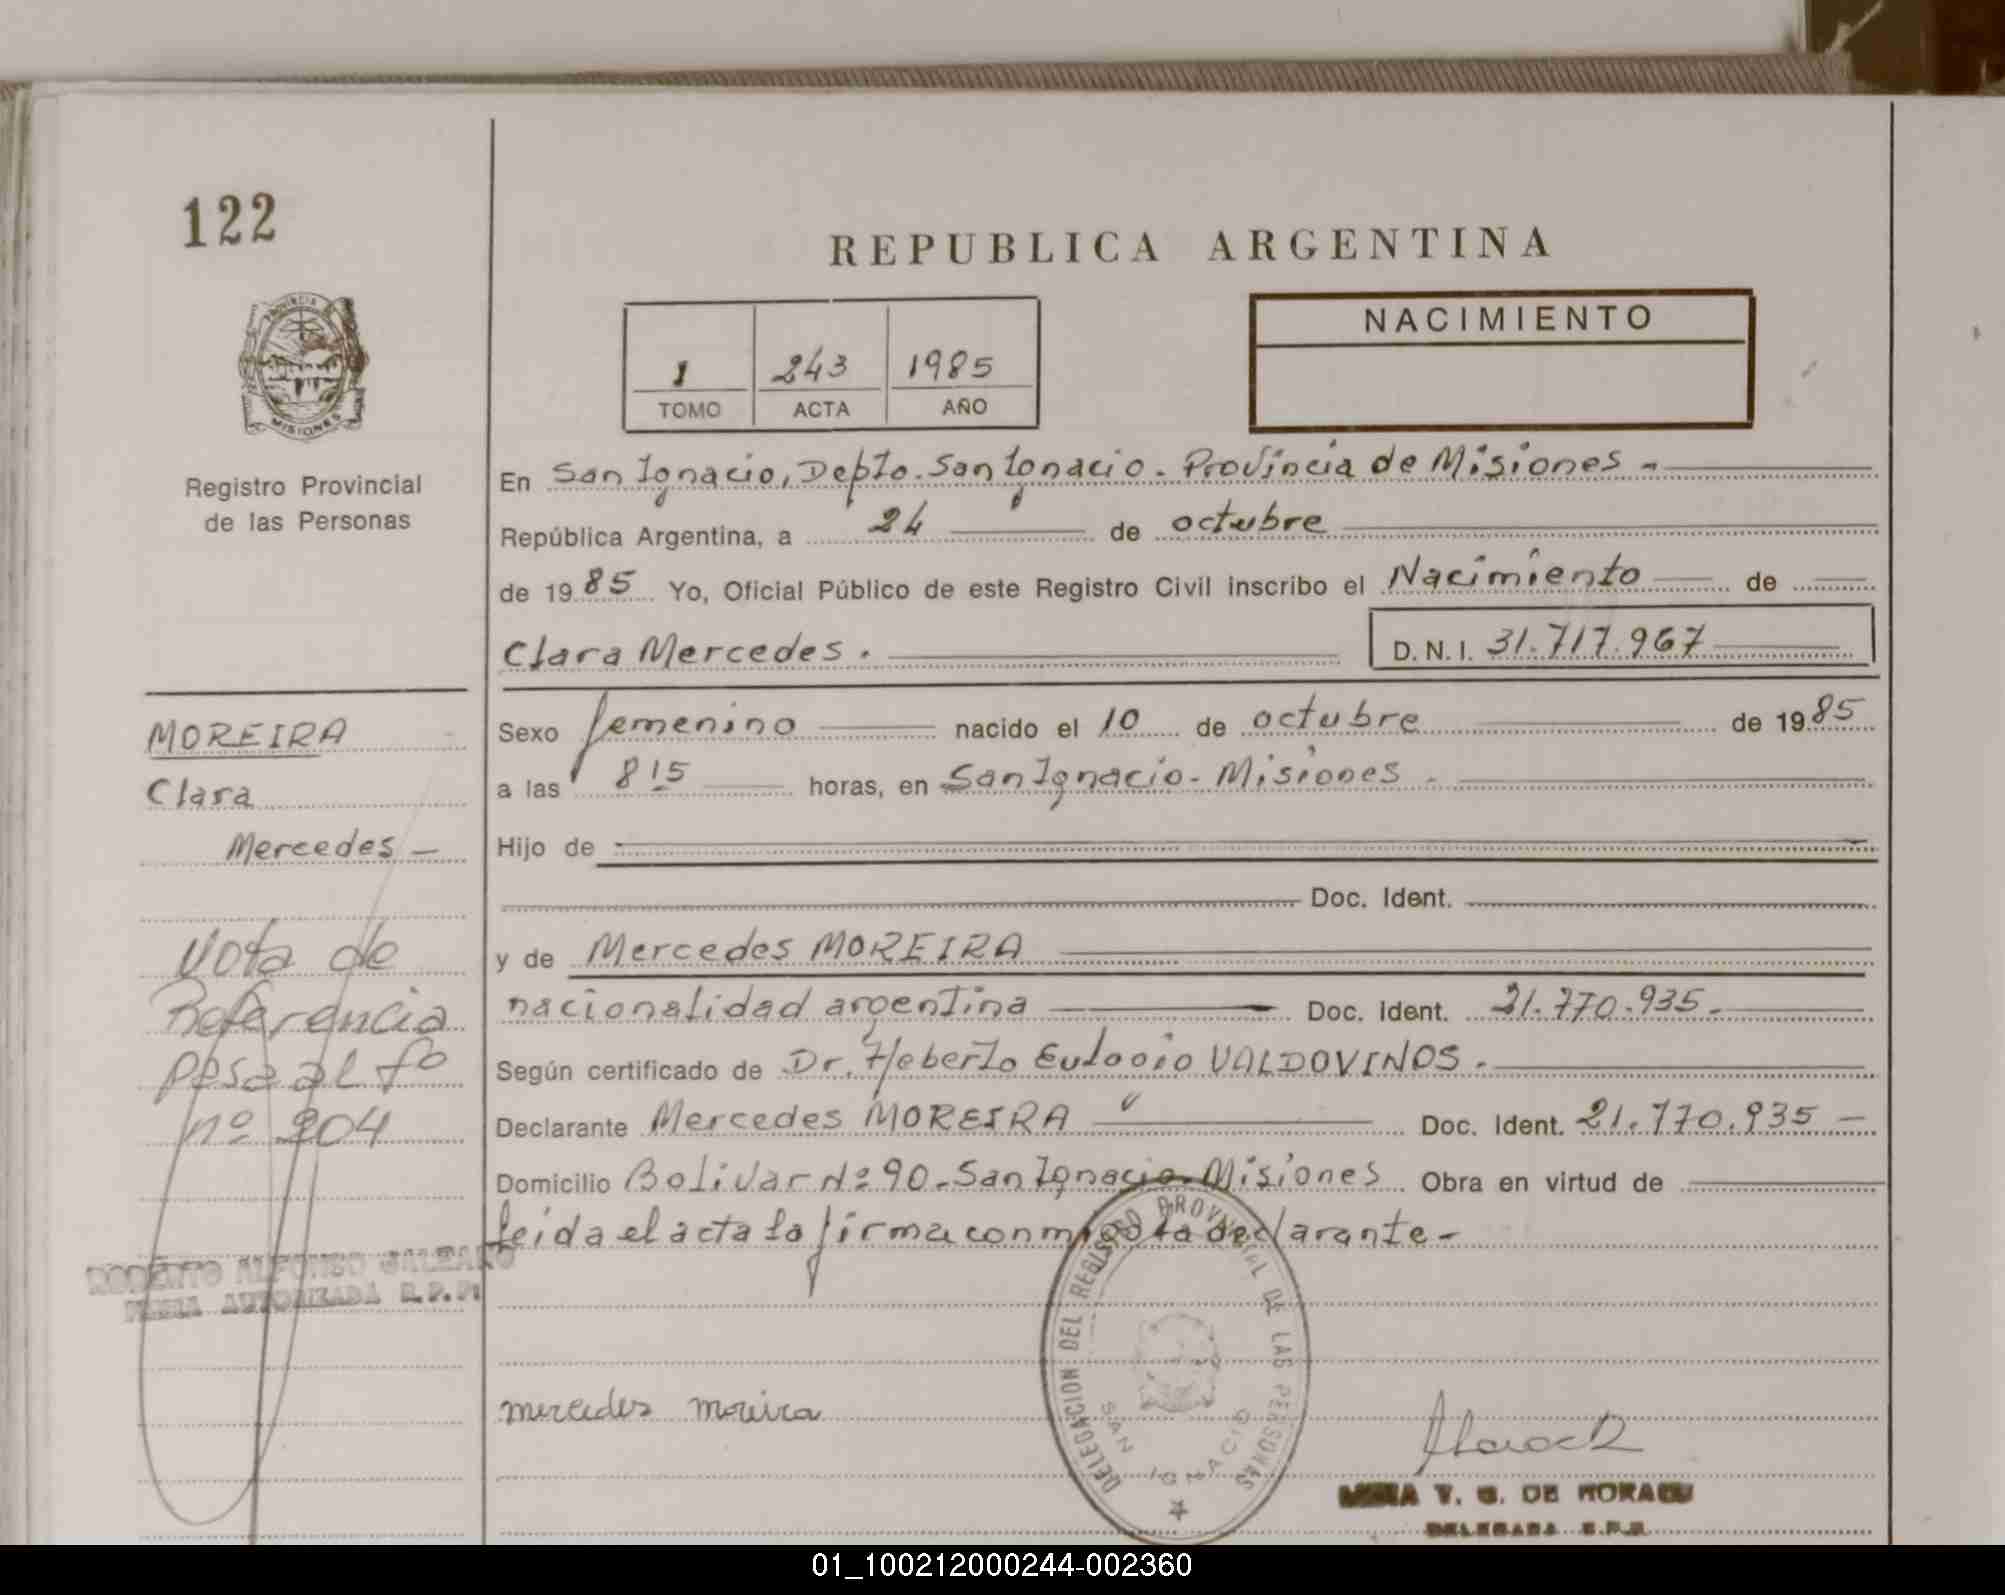 122
REPUBLICA ARGENTINA
PROVINCIA DE MISIONES
Registro Provincial
de las Personas
1 243 1985
TOMO ACTA AÑO
NACIMIENTO
En San Ignacio, Depto. San Ignacio. Provincia de Misiones -
República Argentina, a 24 de octubre
de 1985 Yo, Oficial Público de este Registro Civil inscribo el Nacimiento de
Clara Mercedes. D.N.I. 31.717.967
MOREIRA
Clara
Mercedes -
Nota de
Referencia
pasa al fo
nº 204
ROBERTO ALFONSO GALEANO
FIRMA AUTORIZADA R.P.P.
Sexo femenino nacido el 10 de octubre de 1985
a las 8 15 horas, en San Ignacio - Misiones -
Hijo de
Doc. Ident.
y de Mercedes MOREIRA
nacionalidad argentina Doc. Ident. 21.770.935.-
Según certificado de Dr. Heberto Eulogio VALDOVINOS.-
Declarante Mercedes MOREIRA Doc. Ident. 21.770.935 -
Domicilio Bolivar Nº 90 - San Ignacio - Misiones Obra en virtud de
leida el acta la firma conmigo la declarante -
mercedes moreira
DELEGACION DEL REGISTRO PROVINCIAL DE LAS PERSONAS
SAN IGNACIO
V. G. DE
DELEGADA R.P.P.
01_100212000244-002360